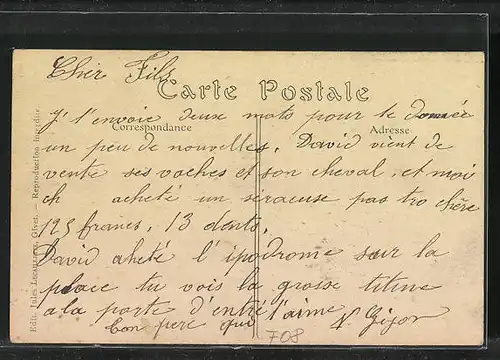 Cher Fils
Carte Postale
J' t'envoie deux mots pour te donnée
Correspondance
Adresse
un peu de nouvelles. David vient de
vente ses vaches et son cheval, et moi
ch acheté un séraeuse pas tro chère
125 francs, 13 dents,
David aheté l'ipodrome sur la
place tu vois la grosse titine
a la porte d'entre
ton pere qui t'aime
V. Gijon
708
Edit. Jules Givet. — Reproduction interdite